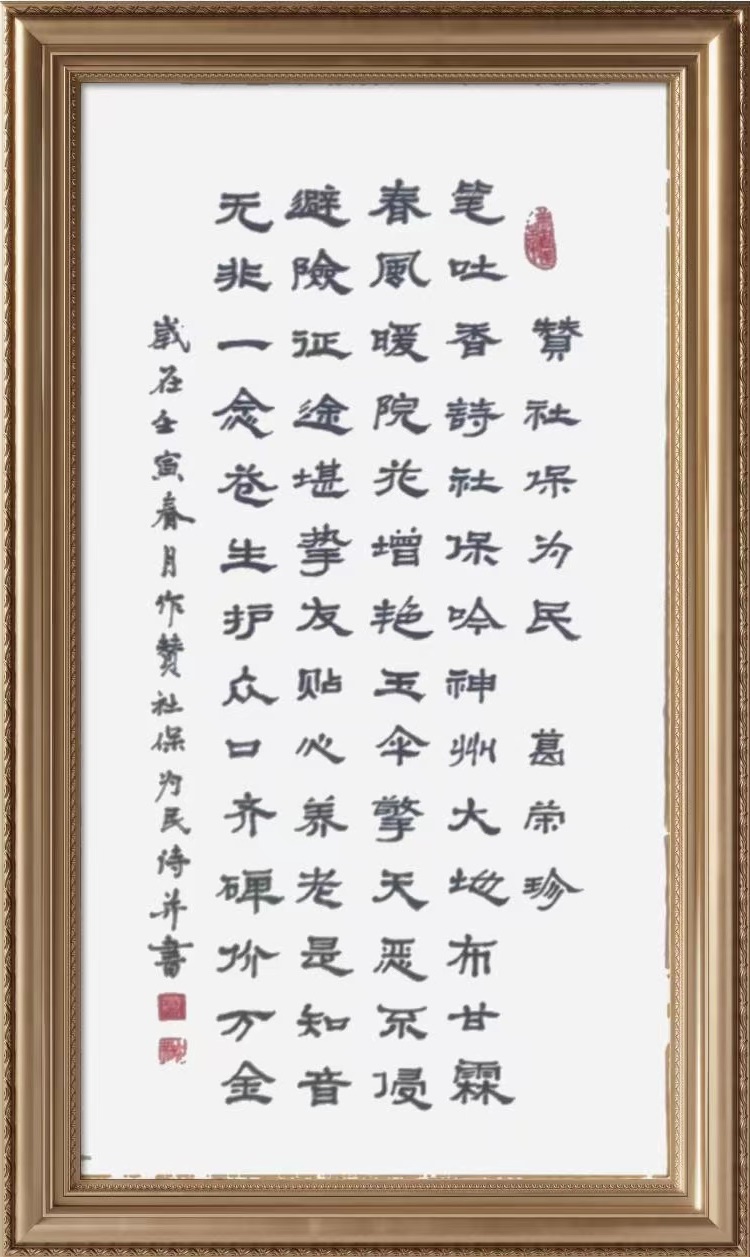 贊社保为民 葛荣珍
笔吐香詩社保吟神州大地布甘霖
春風暖院花增艳玉伞擎天恶不侵
避險征途堪挚友贴心养老是知音
无非一念苍生护众口齐碑价万金
歲在壬寅春月作贊社保为民诗并書